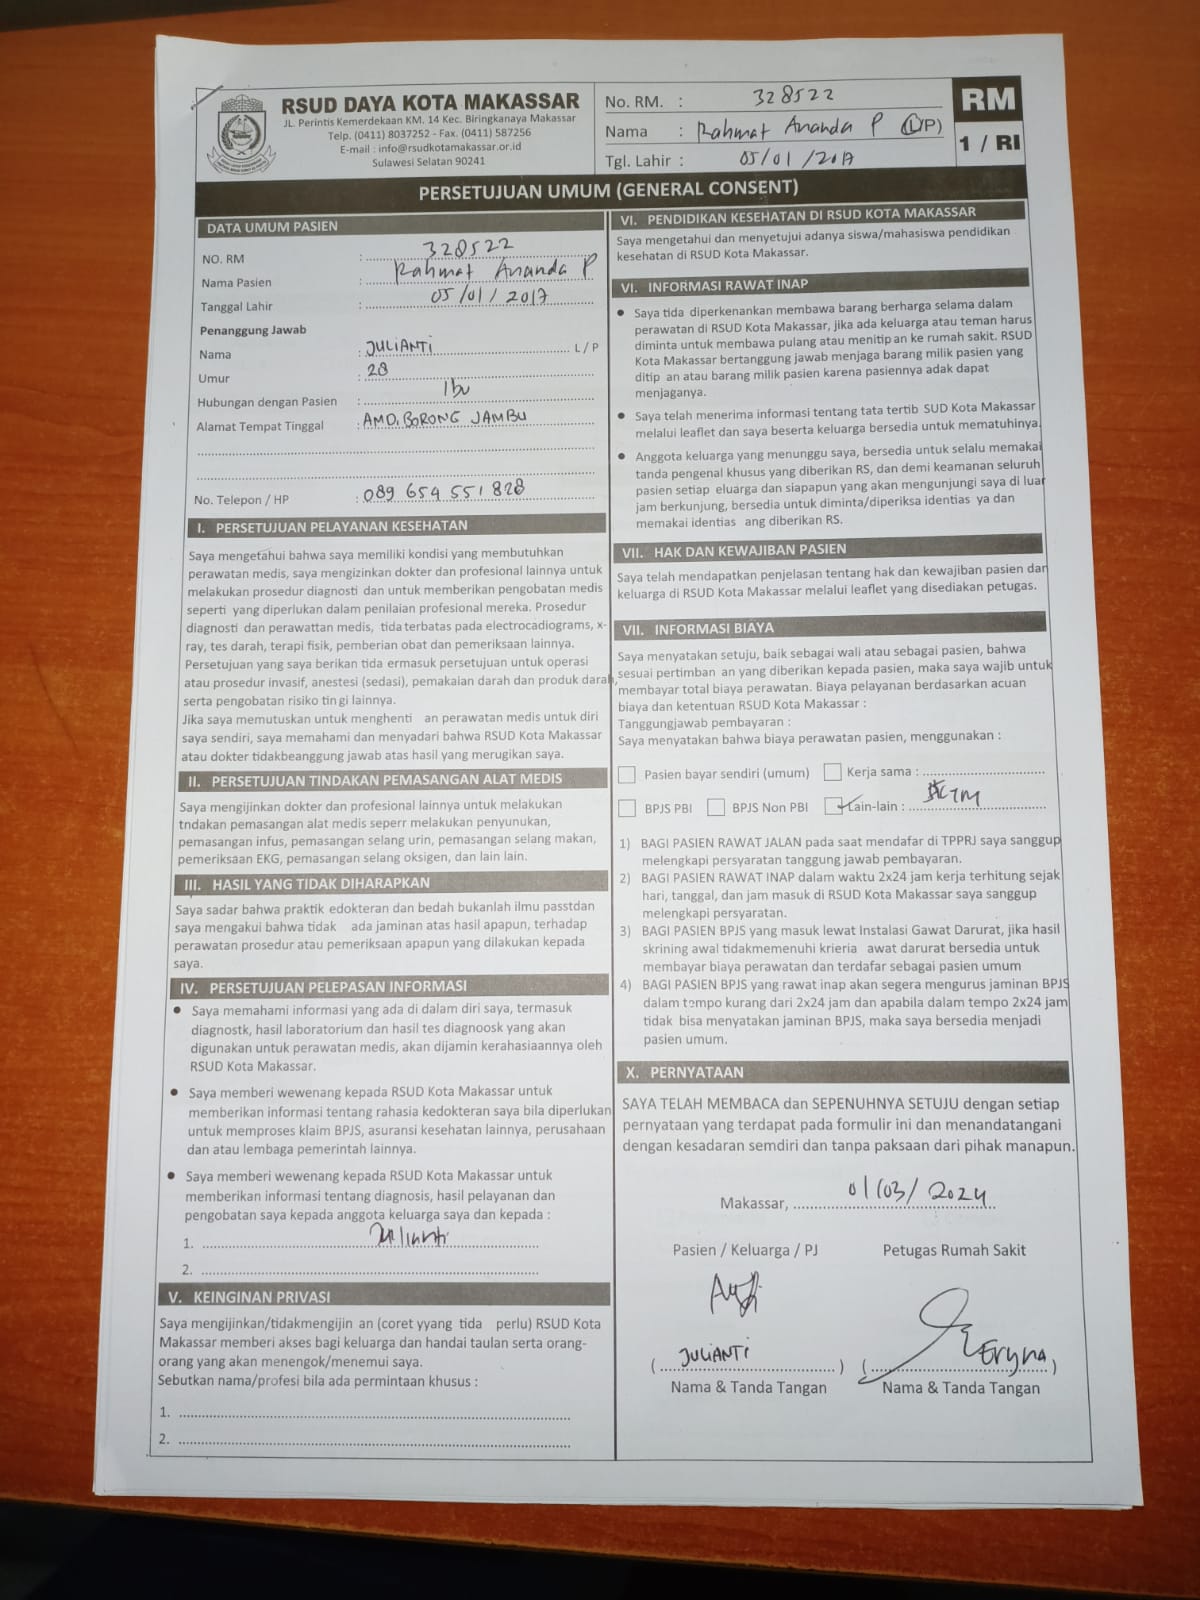 RSUD DAYA KOTA MAKASSAR
JL. Perintis Kemerdekaan KM. 14 Kec. Biringkanaya Makassar
Telp. (0411) 8037252 - Fax. (0411) 587256
E-mail : info@rsudkotamakassar.or.id
Sulawesi Selatan 90241
No. RM. : 328522
Nama : Rahmat Ananda P (L/P)
Tgl. Lahir : 05/01/2017
RM
1 / RI
PERSETUJUAN UMUM (GENERAL CONSENT)
DATA UMUM PASIEN
NO. RM : 328522
Nama Pasien : Rahmat Ananda P
Tanggal Lahir : 05/01/2017
Penanggung Jawab
Nama : JULIANTI L / P
Umur : 28
Hubungan dengan Pasien : Ibu
Alamat Tempat Tinggal : AMD. BORONG JAMBU
No. Telepon / HP : 089 654 551 828
I. PERSETUJUAN PELAYANAN KESEHATAN
Saya mengetahui bahwa saya memiliki kondisi yang membutuhkan
perawatan medis, saya mengizinkan dokter dan profesional lainnya untuk
melakukan prosedur diagnosti dan untuk memberikan pengobatan medis
seperti yang diperlukan dalam penilaian profesional mereka. Prosedur
diagnosti dan perawattan medis, tida terbatas pada electrocadiograms, x-
ray, tes darah, terapi fisik, pemberian obat dan pemeriksaan lainnya.
Persetujuan yang saya berikan tida ermasuk persetujuan untuk operasi
atau prosedur invasif, anestesi (sedasi), pemakaian darah dan produk darah,
serta pengobatan risiko tin gi lainnya.
Jika saya memutuskan untuk menghenti an perawatan medis untuk diri
saya sendiri, saya memahami dan menyadari bahwa RSUD Kota Makassar
atau dokter tidakbeanggung jawab atas hasil yang merugikan saya.
II. PERSETUJUAN TINDAKAN PEMASANGAN ALAT MEDIS
Saya mengijinkan dokter dan profesional lainnya untuk melakukan
tndakan pemasangan alat medis seperr melakukan penyunukan,
pemasangan infus, pemasangan selang urin, pemasangan selang makan,
pemeriksaan EKG, pemasangan selang oksigen, dan lain lain.
III. HASIL YANG TIDAK DIHARAPKAN
Saya sadar bahwa praktik edokteran dan bedah bukanlah ilmu passtdan
saya mengakui bahwa tidak ada jaminan atas hasil apapun, terhadap
perawatan prosedur atau pemeriksaan apapun yang dilakukan kepada
saya.
IV. PERSETUJUAN PELEPASAN INFORMASI
• Saya memahami informasi yang ada di dalam diri saya, termasuk
diagnostk, hasil laboratorium dan hasil tes diagnoosk yang akan
digunakan untuk perawatan medis, akan dijamin kerahasiaannya oleh
RSUD Kota Makassar.
• Saya memberi wewenang kepada RSUD Kota Makassar untuk
memberikan informasi tentang rahasia kedokteran saya bila diperlukan
untuk memproses klaim BPJS, asuransi kesehatan lainnya, perusahaan
dan atau lembaga pemerintah lainnya.
• Saya memberi wewenang kepada RSUD Kota Makassar untuk
memberikan informasi tentang diagnosis, hasil pelayanan dan
pengobatan saya kepada anggota keluarga saya dan kepada :
1. Julianti
2.
V. KEINGINAN PRIVASI
Saya mengijinkan/tidakmengijin an (coret yyang tida perlu) RSUD Kota
Makassar memberi akses bagi keluarga dan handai taulan serta orang-
orang yang akan menengok/menemui saya.
Sebutkan nama/profesi bila ada permintaan khusus :
1.
2.
VI. PENDIDIKAN KESEHATAN DI RSUD KOTA MAKASSAR
Saya mengetahui dan menyetujui adanya siswa/mahasiswa pendidikan
kesehatan di RSUD Kota Makassar.
VI. INFORMASI RAWAT INAP
• Saya tida diperkenankan membawa barang berharga selama dalam
perawatan di RSUD Kota Makassar, jika ada keluarga atau teman harus
diminta untuk membawa pulang atau menitip an ke rumah sakit. RSUD
Kota Makassar bertanggung jawab menjaga barang milik pasien yang
ditip an atau barang milik pasien karena pasiennya adak dapat
menjaganya.
• Saya telah menerima informasi tentang tata tertib SUD Kota Makassar
melalui leaflet dan saya beserta keluarga bersedia untuk mematuhinya.
• Anggota keluarga yang menunggu saya, bersedia untuk selalu memakai
tanda pengenal khusus yang diberikan RS, dan demi keamanan seluruh
pasien setiap eluarga dan siapapun yang akan mengunjungi saya di luar
jam berkunjung, bersedia untuk diminta/diperiksa identias ya dan
memakai identias ang diberikan RS.
VII. HAK DAN KEWAJIBAN PASIEN
Saya telah mendapatkan penjelasan tentang hak dan kewajiban pasien dan
keluarga di RSUD Kota Makassar melalui leaflet yang disediakan petugas.
VII. INFORMASI BIAYA
Saya menyatakan setuju, baik sebagai wali atau sebagai pasien, bahwa
sesuai pertimban an yang diberikan kepada pasien, maka saya wajib untuk
membayar total biaya perawatan. Biaya pelayanan berdasarkan acuan
biaya dan ketentuan RSUD Kota Makassar :
Tanggungjawab pembayaran :
Saya menyatakan bahwa biaya perawatan pasien, menggunakan :
Pasien bayar sendiri (umum) Kerja sama :
BPJS PBI BPJS Non PBI Lain-lain :
1) BAGI PASIEN RAWAT JALAN pada saat mendafar di TPPRJ saya sanggup
melengkapi persyaratan tanggung jawab pembayaran.
2) BAGI PASIEN RAWAT INAP dalam waktu 2x24 jam kerja terhitung sejak
hari, tanggal, dan jam masuk di RSUD Kota Makassar saya sanggup
melengkapi persyaratan.
3) BAGI PASIEN BPJS yang masuk lewat Instalasi Gawat Darurat, jika hasil
skrining awal tidakmemenuhi krieria awat darurat bersedia untuk
membayar biaya perawatan dan terdafar sebagai pasien umum
4) BAGI PASIEN BPJS yang rawat inap akan segera mengurus jaminan BPJS
dalam tempo kurang dari 2x24 jam dan apabila dalam tempo 2x24 jam
tidak bisa menyatakan jaminan BPJS, maka saya bersedia menjadi
pasien umum.
X. PERNYATAAN
SAYA TELAH MEMBACA dan SEPENUHNYA SETUJU dengan setiap
pernyataan yang terdapat pada formulir ini dan menandatangani
dengan kesadaran semdiri dan tanpa paksaan dari pihak manapun.
Makassar, 01/03/2024
Pasien / Keluarga / PJ Petugas Rumah Sakit
( JULIANTI ) ( Eryna )
Nama & Tanda Tangan Nama & Tanda Tangan